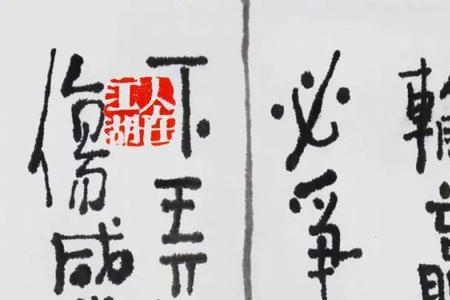 輸
必爭
不
人在
江湖
傷感